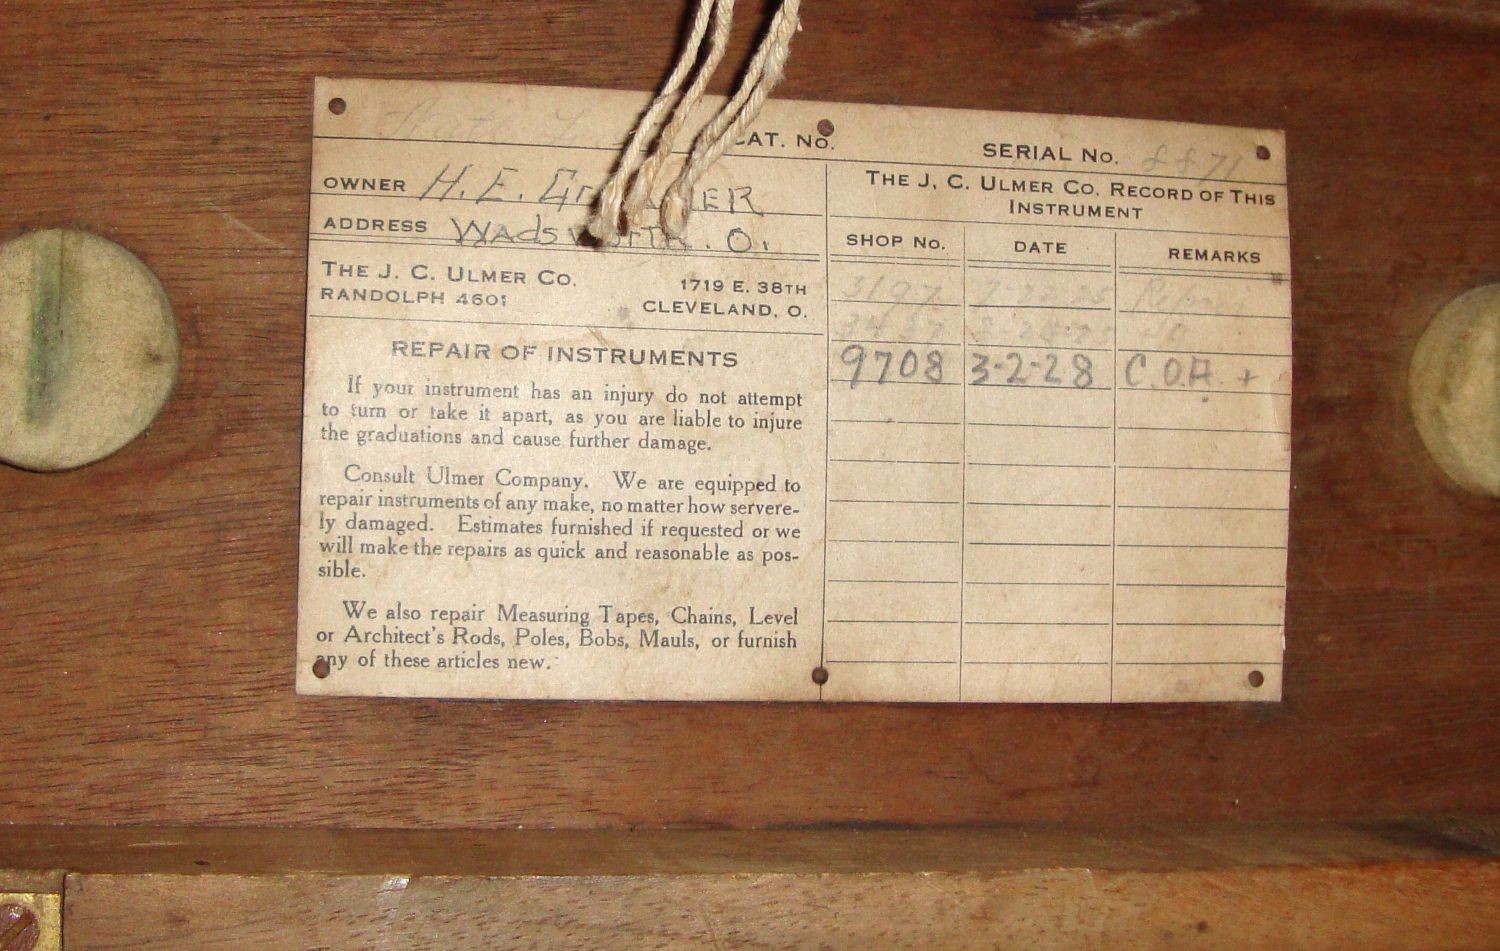 CAT. NO.
SERIAL NO. 8871
OWNER H. E.
ADDRESS Wadsworth. O.
THE J. C. ULMER CO. 1719 E. 38TH
RANDOLPH 4601 CLEVELAND, O.
REPAIR OF INSTRUMENTS
If your instrument has an injury do not attempt
to turn or take it apart, as you are liable to injure
the graduations and cause further damage.
Consult Ulmer Company. We are equipped to
repair instruments of any make, no matter how servere-
ly damaged. Estimates furnished if requested or we
will make the repairs as quick and reasonable as pos-
sible.
We also repair Measuring Tapes, Chains, Level
or Architect's Rods, Poles, Bobs, Mauls, or furnish
any of these articles new.
THE J. C. ULMER CO. RECORD OF THIS
INSTRUMENT
SHOP NO. DATE REMARKS
3197
9708 3-2-28 C.O.A. +